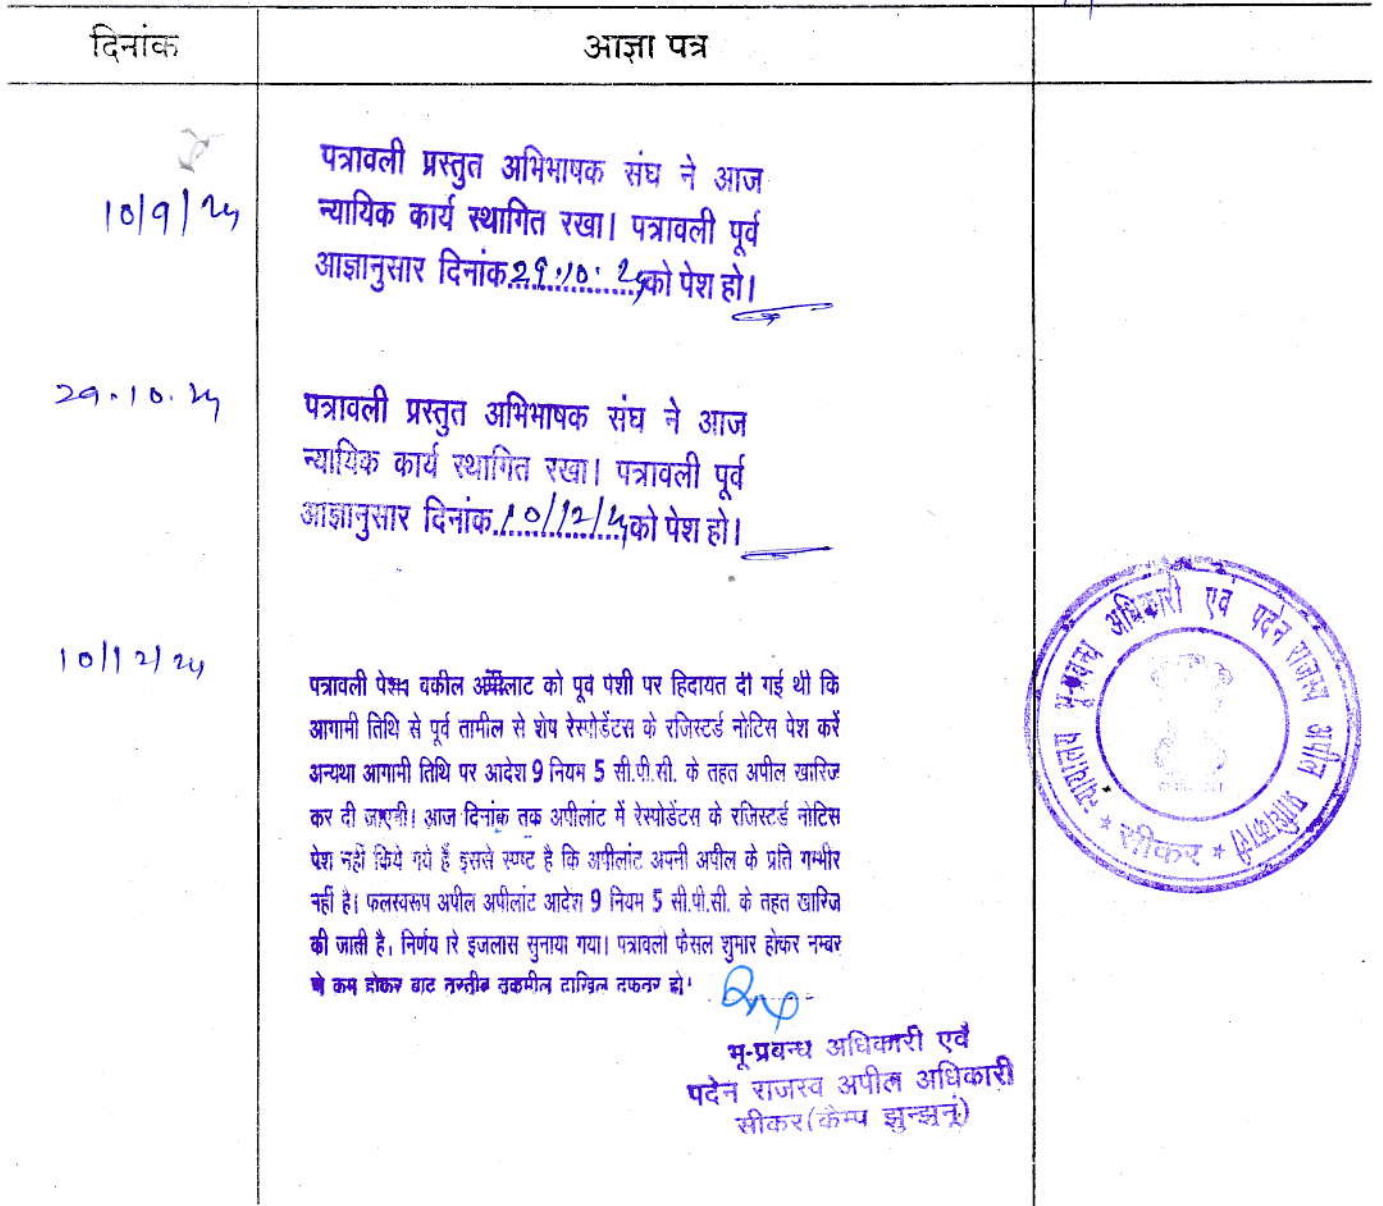 दिनांक
आज्ञा पत्र
10/9/24
पत्रावली प्रस्तुत अभिभाषक संघ ने आज
न्यायिक कार्य स्थागित रखा। पत्रावली पूर्व
आज्ञानुसार दिनांक 29.10.24 को पेश हो।
29.10.24
पत्रावली प्रस्तुत अभिभाषक संघ ने आज
न्यायिक कार्य स्थागित रखा। पत्रावली पूर्व
आज्ञानुसार दिनांक 10/12/24 को पेश हो।
10/12/24
पत्रावली पेश। वकील अपीलाट को पूर्व पेशी पर हिदायत दी गई थी कि
आगामी तिथि से पूर्व तामील से शेष रेस्पोडेंटस के रजिस्टर्ड नोटिस पेश करें
अन्यथा आगामी तिथि पर आदेश 9 नियम 5 सी.पी.सी. के तहत अपील खारिज
कर दी जाएगी। आज दिनांक तक अपीलांट में रेस्पोडेंटस के रजिस्टर्ड नोटिस
पेश नहीं किये गये हैं इससे स्पष्ट है कि अपीलांट अपनी अपील के प्रति गम्भीर
नहीं है। फलस्वरूप अपील अपीलांट आदेश 9 नियम 5 सी.पी.सी. के तहत खारिज
की जाती है, निर्णय रे इजलास सुनाया गया। पत्रावली फैसल शुमार होकर नम्बर
से कम होकर बाद तरतीब तकमील दाखिल दफ्तर हो।
भू-प्रबन्ध अधिकारी एवं
पदेन राजस्व अपील अधिकारी
सीकर (कैम्प झुन्झुनूं)
न्यायालय भू-प्रबन्ध अधिकारी एवं पदेन राजस्व अपील प्राधिकारी
* सीकर *